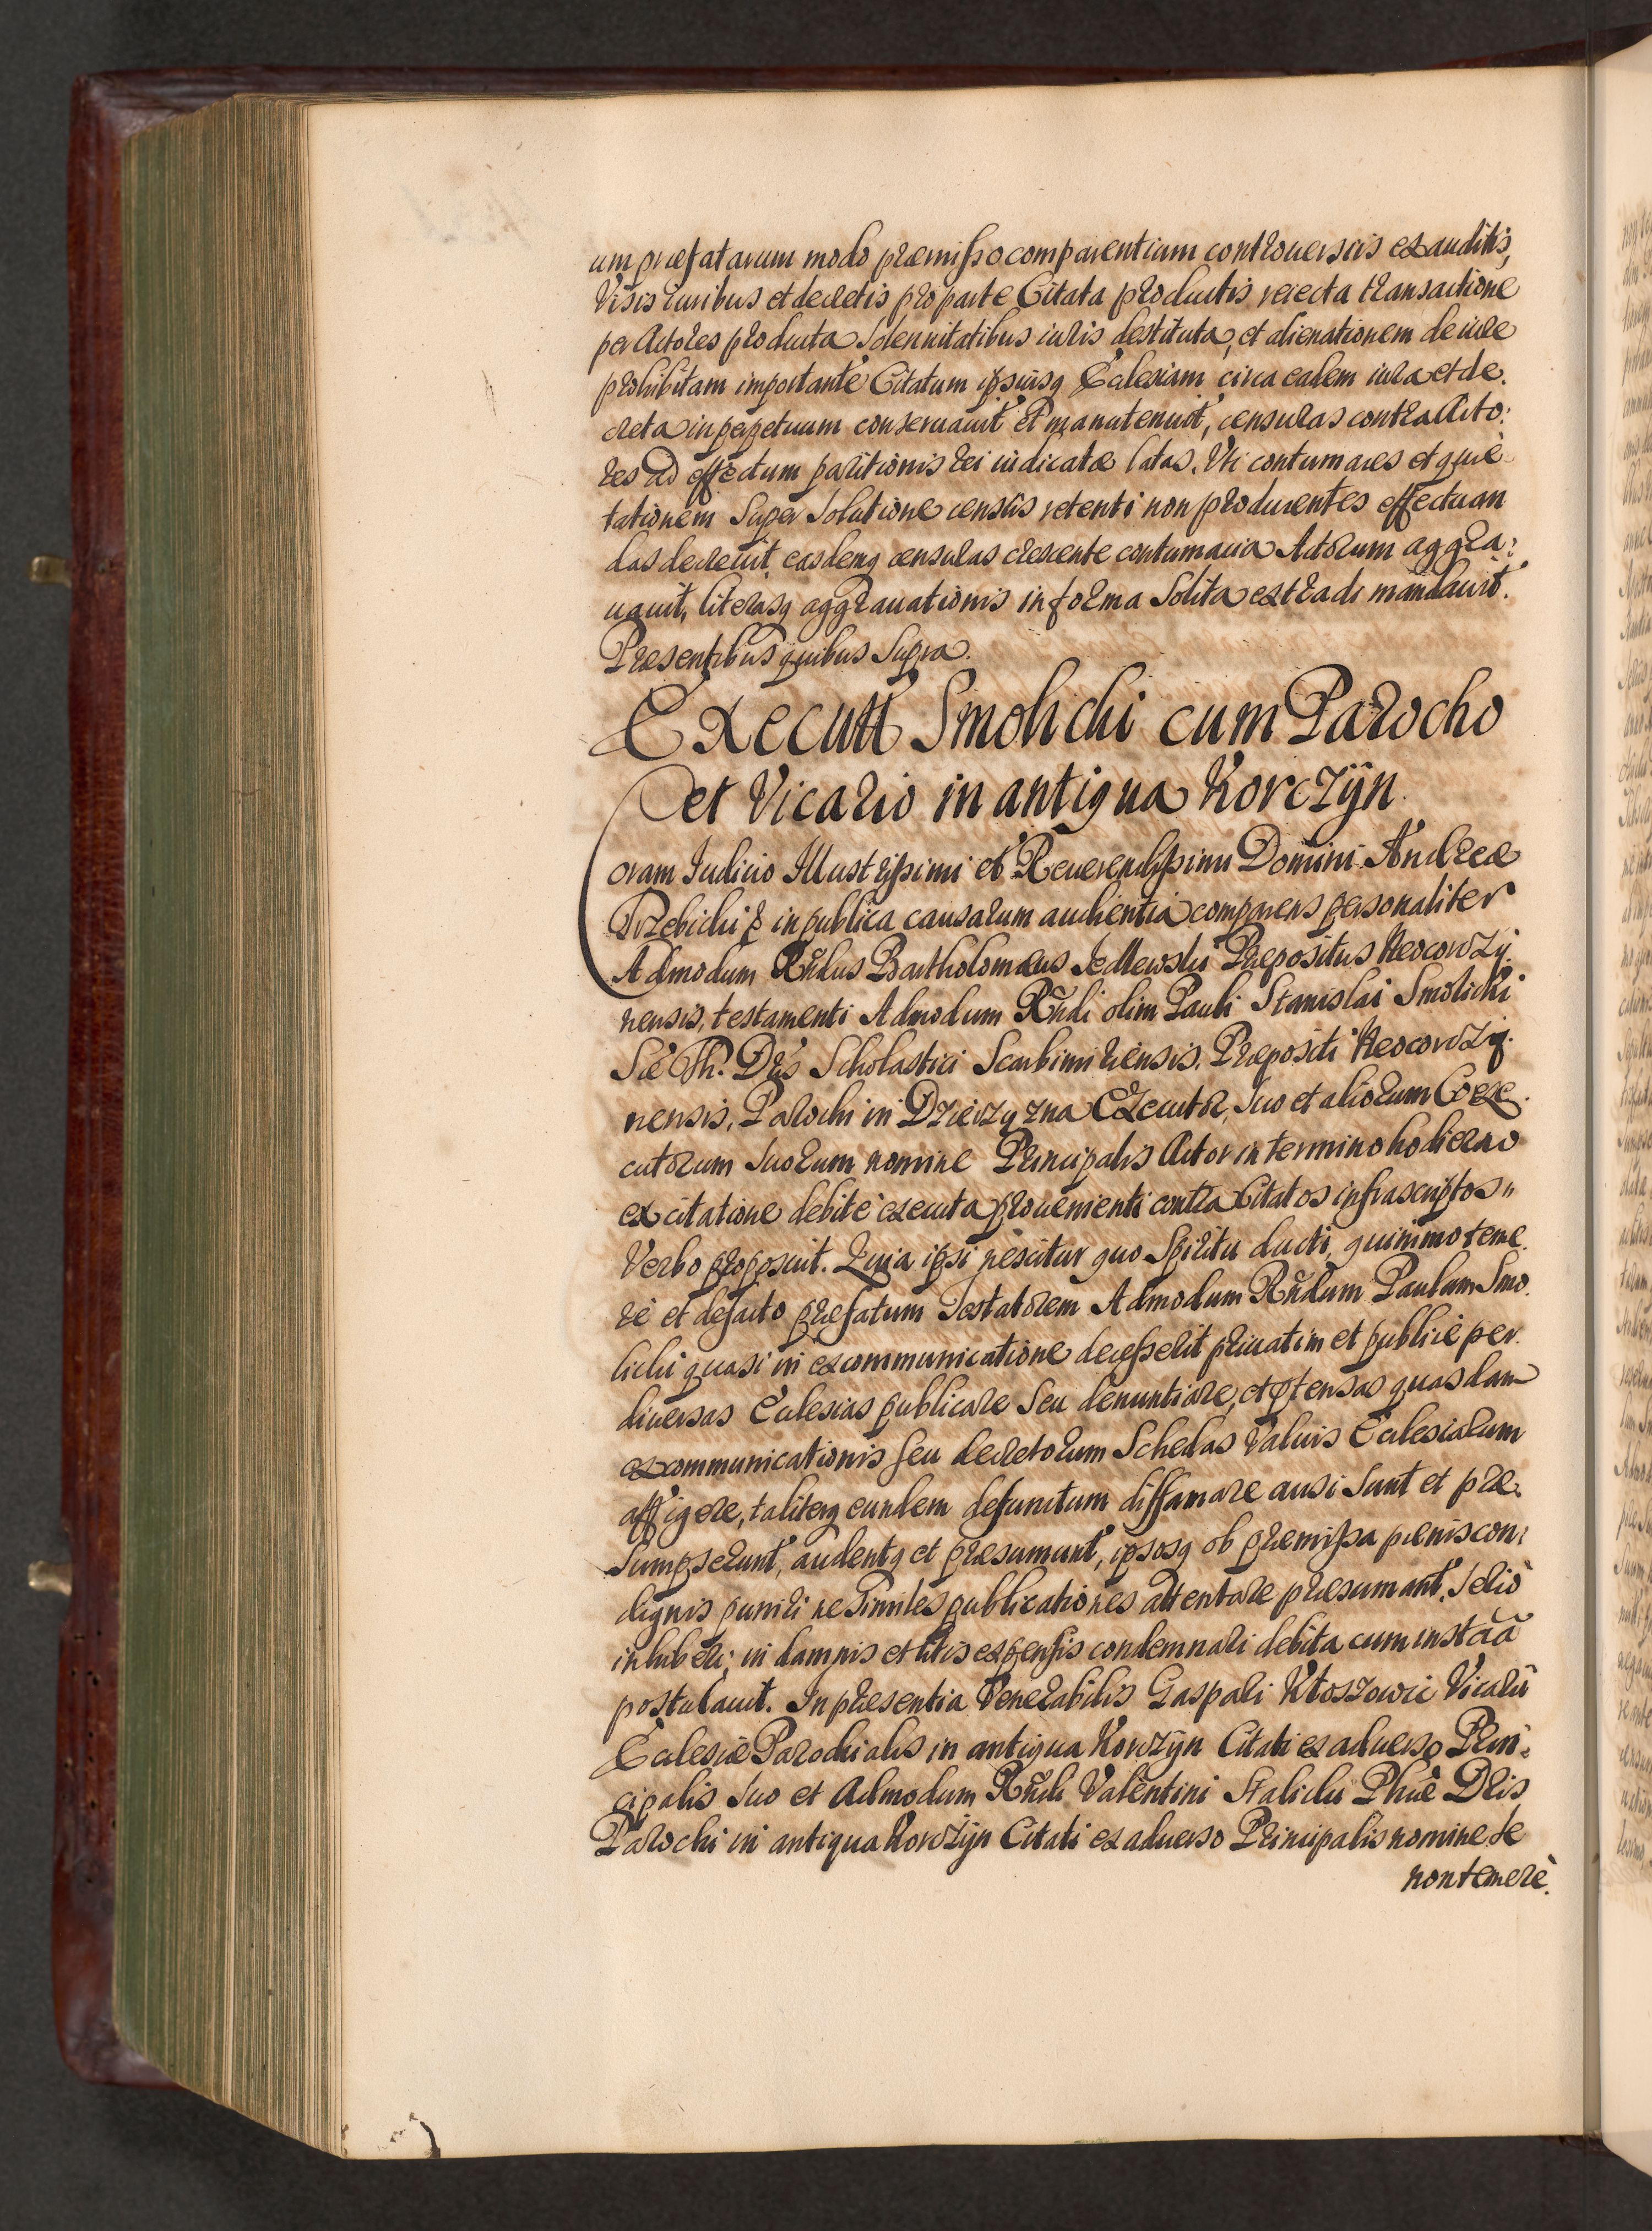 um præfatarum modo præmisso comparentium controuersiis exauditis,
Visis iuribus et decretis pro parte Citata productis reiecta transactione
per Actores producta Solennitatibus iuris destituta, et alienationem de iure
prohibitam importante Citatum ipsiusq Ecclesiam circa eadem iura et de.
creta in perpetuum conseruauit et manutenuit, censuras contra Acto:
res ad effectum paritionis rei iudicatæ latas. Vti contumaces et quie
tationem Super Solutione census retenti non producentes effectuan
das decreuit, easdemq censuras crescente contumacia Actorum aggra:
uauit, literasq aggrauationis in forma Solita extradi mandauit.
Præsentibus quibus Supra.
Executt Smolichi cum Parocho
et Vicario in antiqua Korczÿn.
Coram Iudicio Illustrissimi et Reuerendissimi Domini Andreæ
Trzebichi & in publica causarum audientia comparens personaliter
Admodum Rñdus Bartholomæus Jedlewski Præpositus Neocorczÿ.
nensis, testamenti Admodum Rñdi olim Pauli Stanislai Smolichi
Sæ Th. Dris Scholastici Scarbimiriensis. Præpositi Neocorczÿ.
nensis, Parochi in Dzierzązna Executor, Suo et aliorum Coexe.
cutorum Suorum nomine Principalis Actor in termino hodierno
ex citatione debite executa proueniente contra Citatos infrascriptos"
Verbo proposuit. Quia ipsi nescitur quo Spiritu ducti, quinimo teme.
rè et defacto præfatum Testatorem Admodum Rñdum Paulum Smo.
lichi quasi in excommunicatione decesserit priuatim et publicè per.
diuersas Ecclesias publicare Seu denuntiare, et ptensas quasdam
excommunicationis seu decretorum Schedas Valuis Ecclesiarum
affigere, taliterq eundem defunctum diffamare ausi Sunt et præ.
Sumpserunt, audentq et præsumunt, ipsosq ob præmissa pænis con:
dignis puniri ne Similes publicationes attentare præsumant, Seriò
inhiberi; in damnis et litis expensis condemnari debita cum instãã
postulauit. In præsentia Venerabilis Gaspari Kłoszowic Vicarii
Ecclesiæ Parochialis in antiqua Korczÿn Citati ex aduerso Prin:
cipalis Suo et Admodum Rñdi Valentini Stalichi Phiæ Dris
Parochi in antiqua Korczÿn Citati ex aduerso Principalis nomine se
non temerè.